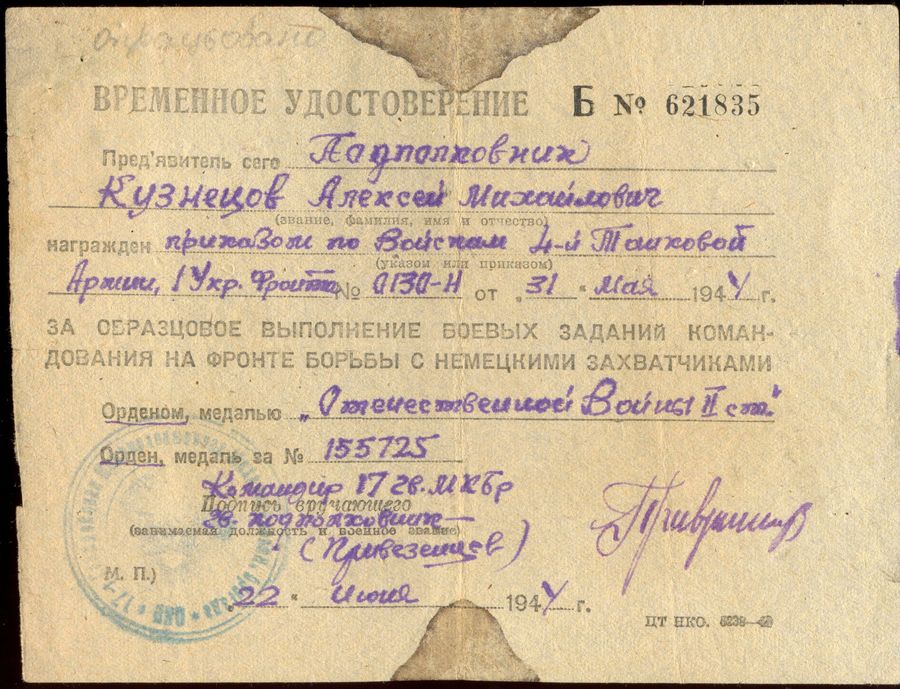 ВРЕМЕННОЕ УДОСТОВЕРЕНИЕ Б № 621835
Пред'явитель сего Подполковник
Кузнецов Алексей Михайлович
(звание, фамилия, имя и отчество)
награжден приказом по Войскам 4-й Танковой
(указом или приказом)
Армии, 1 Укр. Фронта № 0130-Н от „31" мая 1944 г.
ЗА ОБРАЗЦОВОЕ ВЫПОЛНЕНИЕ БОЕВЫХ ЗАДАНИЙ КОМАН-
ДОВАНИЯ НА ФРОНТЕ БОРЬБЫ С НЕМЕЦКИМИ ЗАХВАТЧИКАМИ
Орденом, медалью „Отечественной Войны II ст."
Орден, медаль за № 155725
Командир 17 гв. МКБр
Подпись вручающего
гв. подполковник
(занимаемая должность и военное звание)
(Привезенцев)
М. П.)
„22" июня 1944 г.
ЦТ НКО.